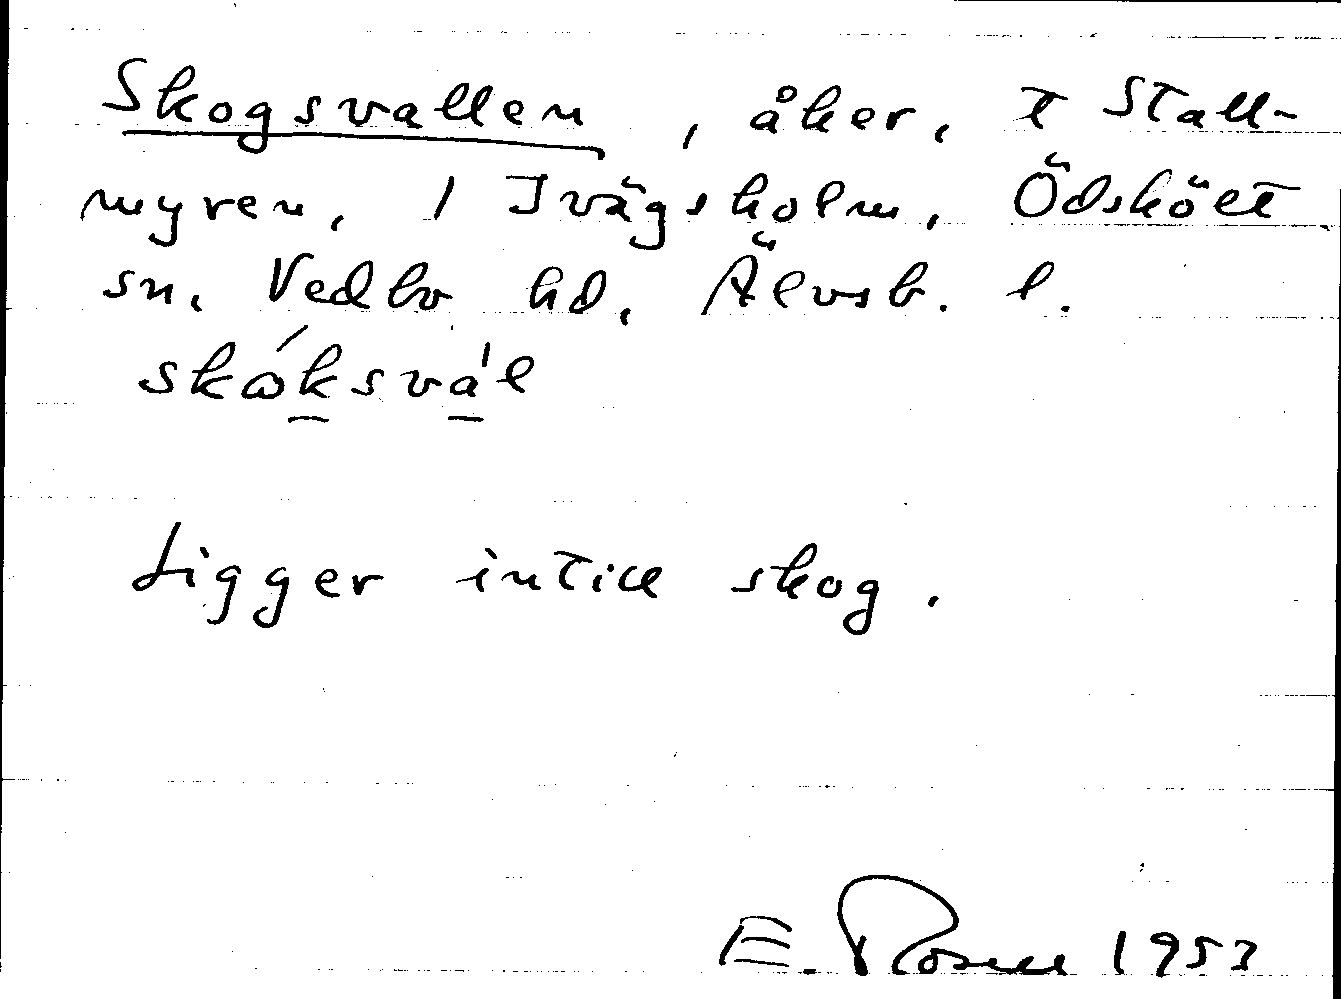 Skogsvallen, åker, t Stall-
myren, 1 Ivägsholm, Ödskölt
sn, Vedbo hd, Älvsb. l.
skώksva'l
Ligger intill skog.
E. Rosell 1953